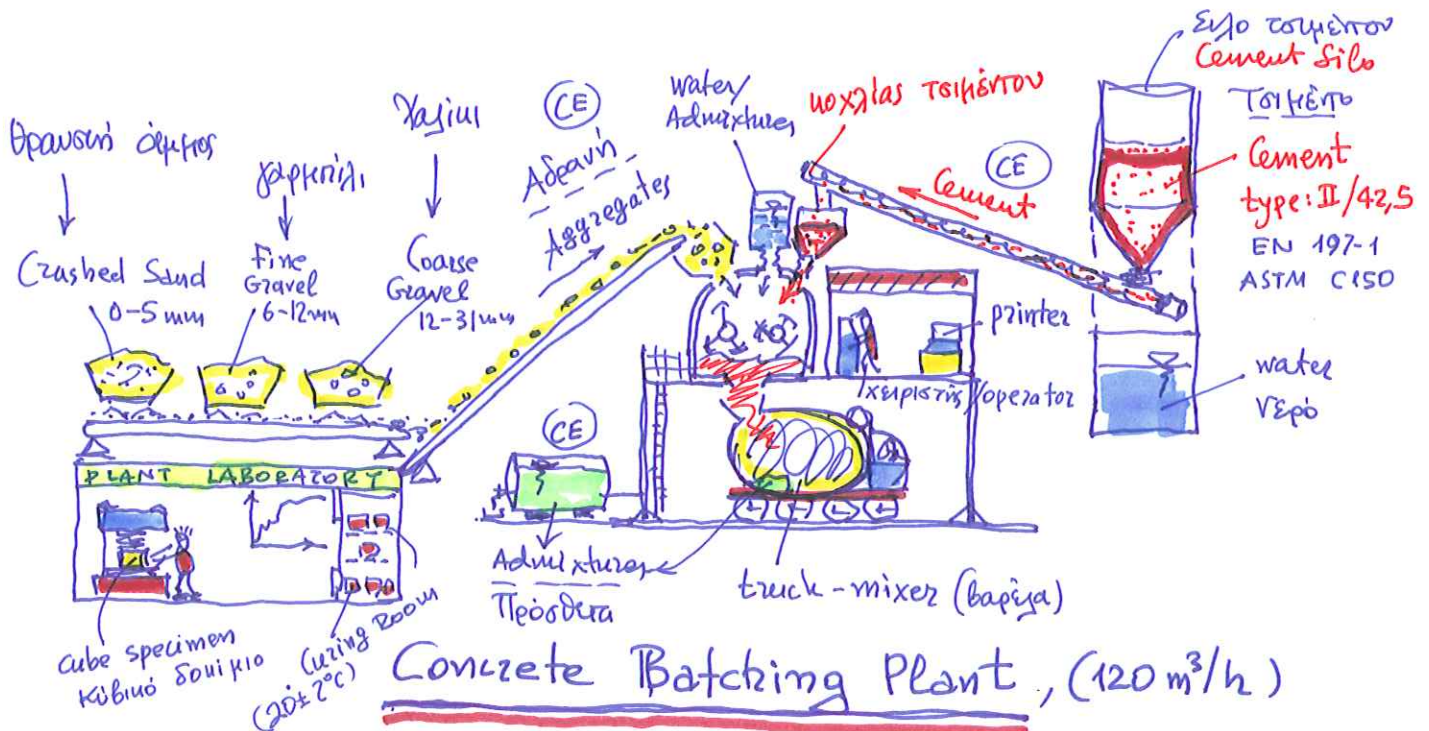 Θραυστή άμμος
Crashed Sand
0-5 mm
γαρμπίλι
Fine
Gravel
6-12mm
Χαλίκι
Coarse
Gravel
12-31mm
CE
Αδρανή
Aggregates
water/
Admixtures
κοχλίας τσιμέντου
Cement
CE
Σιλο τσιμέντου
Cement Silo
Τσιμέντο
Cement
type: II/42,5
EN 197-1
ASTM C150
printer
χειριστής/operator
water
νερό
PLANT LABORATORY
CE
Admixtures
Πρόσθετα
truck-mixer (βαρέλα)
cube specimen
κυβικό δοκίμιο
Curing Room
(20±2°C)
Concrete Batching Plant, (120 m³/h)